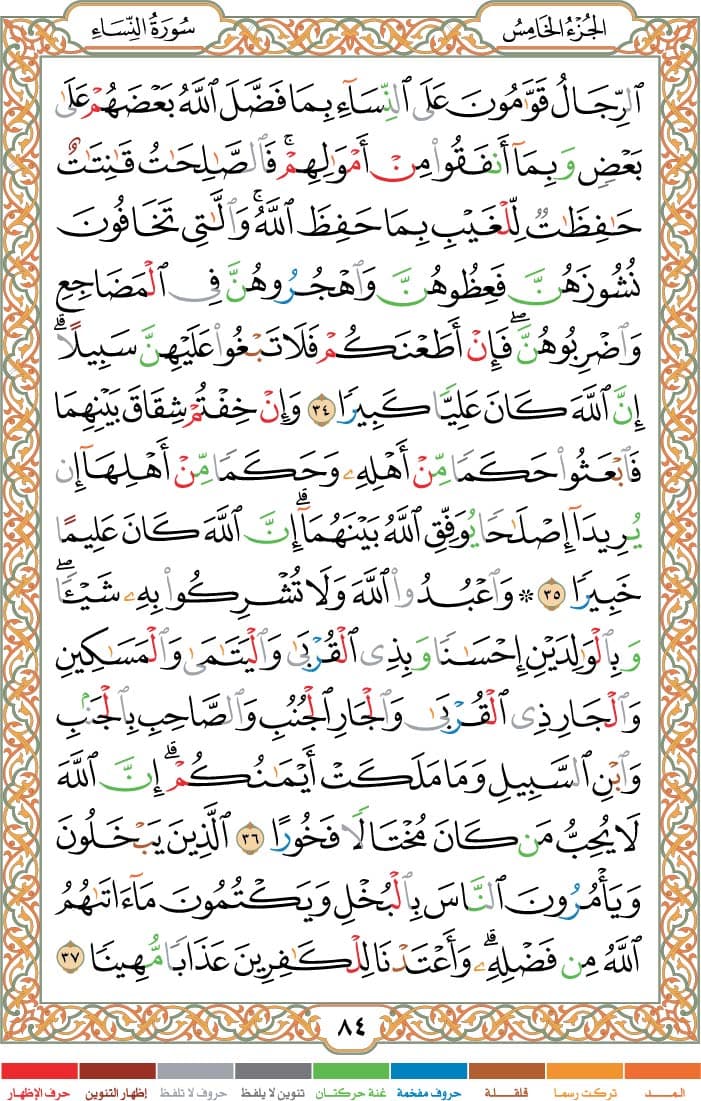 الجُزْءُ الخَامِسُ
سُورَةُ النِّسَاءِ
ٱلرِّجَالُ قَوَّٰمُونَ عَلَى ٱلنِّسَآءِ بِمَا فَضَّلَ ٱللَّهُ بَعْضَهُمْ عَلَىٰ
بَعْضٖ وَبِمَآ أَنفَقُواْ مِنْ أَمْوَٰلِهِمْۚ فَٱلصَّٰلِحَٰتُ قَٰنِتَٰتٌ
حَٰفِظَٰتٞ لِّلْغَيْبِ بِمَا حَفِظَ ٱللَّهُۚ وَٱلَّٰتِي تَخَافُونَ
نُشُوزَهُنَّ فَعِظُوهُنَّ وَٱهْجُرُوهُنَّ فِي ٱلْمَضَاجِعِ
وَٱضْرِبُوهُنَّۖ فَإِنْ أَطَعْنَكُمْ فَلَا تَبْغُواْ عَلَيْهِنَّ سَبِيلًاۗ
إِنَّ ٱللَّهَ كَانَ عَلِيّٗا كَبِيرٗا ٣٤ وَإِنْ خِفْتُمْ شِقَاقَ بَيْنِهِمَا
فَٱبْعَثُواْ حَكَمٗا مِّنْ أَهْلِهِۦ وَحَكَمٗا مِّنْ أَهْلِهَآ إِن
يُرِيدَآ إِصْلَٰحٗا يُوَفِّقِ ٱللَّهُ بَيْنَهُمَآۗ إِنَّ ٱللَّهَ كَانَ عَلِيمًا
خَبِيرٗا ٣٥ ۞ وَٱعْبُدُواْ ٱللَّهَ وَلَا تُشْرِكُواْ بِهِۦ شَيْـٔٗاۖ
وَبِٱلْوَٰلِدَيْنِ إِحْسَٰنٗا وَبِذِي ٱلْقُرْبَىٰ وَٱلْيَتَٰمَىٰ وَٱلْمَسَٰكِينِ
وَٱلْجَارِ ذِي ٱلْقُرْبَىٰ وَٱلْجَارِ ٱلْجُنُبِ وَٱلصَّاحِبِ بِٱلْجَنۢبِ
وَٱبْنِ ٱلسَّبِيلِ وَمَا مَلَكَتْ أَيْمَٰنُكُمْۗ إِنَّ ٱللَّهَ
لَا يُحِبُّ مَن كَانَ مُخْتَالٗا فَخُورًا ٣٦ ٱلَّذِينَ يَبْخَلُونَ
وَيَأْمُرُونَ ٱلنَّاسَ بِٱلْبُخْلِ وَيَكْتُمُونَ مَآ ءَاتَىٰهُمُ
ٱللَّهُ مِن فَضْلِهِۦۗ وَأَعْتَدْنَا لِلْكَٰفِرِينَ عَذَابٗا مُّهِينٗا ٣٧
٨٤
المـــد تركت رسما قلقـــلة حروف مفخمة غنة حركتـان تنوين لا يلفظ حروف لا تلفظ إظهار التنوين حرف الإظهار